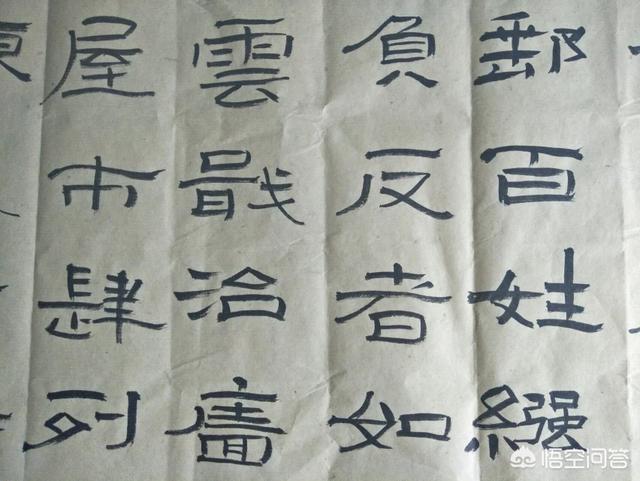 郵百姓繈
負反者如
雲戢治廧
屋市肆列
悟空问答